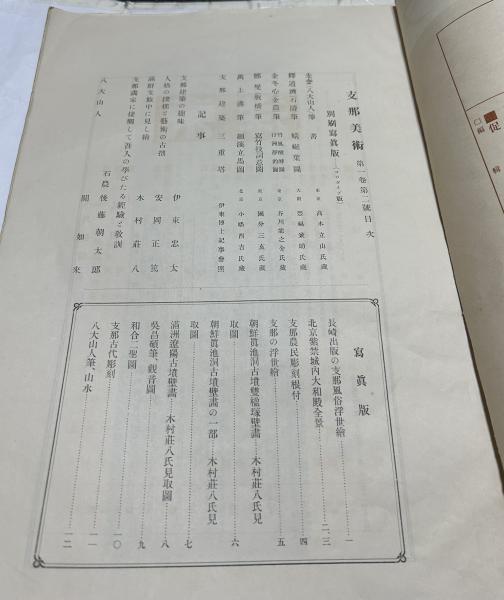 支那美術 第一卷第二號目次
別刷寫眞版
八大山人筆 書 東京 高木立山氏藏
釋道濟石濤筆 大阪
金冬心金農筆
鄭燮板橋筆 東京 國分三亥氏藏
萬上遴筆 北京 小幡酉吉氏藏
支那建築 三重塔 伊東博士記事參照
記事
支那建築の趣味 伊東忠太
人格の價値と藝術の古拙 安岡正篤
滿鮮支旅中に見し繪 木村莊八
支那畫家に接觸して吾人の學びたる經驗と敎訓 石農 後藤朝太郎
八大山人 關如來
寫眞版
長崎出版の支那風俗浮世繪 一
北京紫禁城內大和殿全景 二、三
支那農民彫刻根付 四
支那の浮世繪 五
朝鮮眞池洞古墳雙楹塚壁畫 木村莊八氏見
取圖 六
朝鮮眞池洞古墳壁畫の一部 木村莊八氏見
取圖 七
滿洲遼陽古墳壁畫 木村莊八氏見取圖 八
吳昌碩筆、觀音圖 九
和合二聖圖 一〇
支那古代彫刻 一一
八大山人筆、山水 一二
促
編
輯